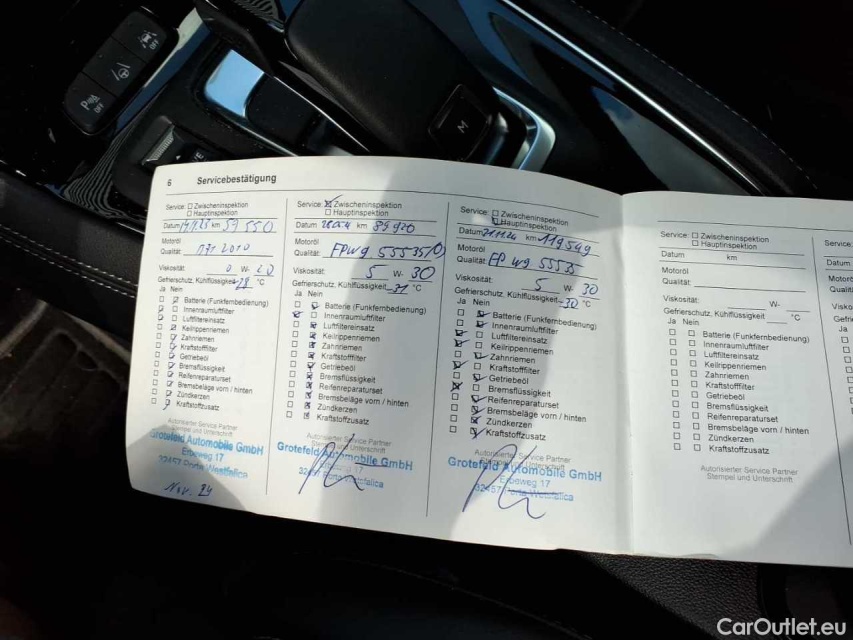 OFF
OFF
M
6 Servicebestätigung
Service: ☐ Zwischeninspektion
☐ Hauptinspektion
Datum 14.11.23 km 59 550
Motoröl
Qualität:
Viskosität: 0 W- 20
Gefrierschutz, Kühlflüssigkeit °C
Ja Nein
Batterie (Funkfernbedienung)
Innenraumluftfilter
Luftfiltereinsatz
Keilrippenriemen
Zahnriemen
Kraftstofffilter
Getriebeöl
Bremsflüssigkeit
Reifenreparaturset
Bremsbeläge vorn / hinten
Zündkerzen
Kraftstoffzusatz
Autorisierter Service Partner
Stempel und Unterschrift
Grotefeld Automobile GmbH
Erbeweg 17
32457 Porta Westfalica
Nov. 24
Service: ☒ Zwischeninspektion
☐ Hauptinspektion
Datum km 89 920
Motoröl
Qualität:
Viskosität: 5 W- 30
Gefrierschutz, Kühlflüssigkeit -31 °C
Ja Nein
Batterie (Funkfernbedienung)
Innenraumluftfilter
Luftfiltereinsatz
Keilrippenriemen
Zahnriemen
Kraftstofffilter
Getriebeöl
Bremsflüssigkeit
Reifenreparaturset
Bremsbeläge vorn / hinten
Zündkerzen
Kraftstoffzusatz
Autorisierter Service Partner
Stempel und Unterschrift
Grotefeld Automobile GmbH
Erbeweg 17
32457 Porta Westfalica
Service: ☐ Zwischeninspektion
Hauptinspektion
Datum km 119 549
Motoröl
Qualität:
Viskosität: 5 W- 30
Gefrierschutz, Kühlflüssigkeit -32 °C
Ja Nein
Batterie (Funkfernbedienung)
Innenraumluftfilter
Luftfiltereinsatz
Keilrippenriemen
Zahnriemen
Kraftstofffilter
Getriebeöl
Bremsflüssigkeit
Reifenreparaturset
Bremsbeläge vorn / hinten
Zündkerzen
Kraftstoffzusatz
Autorisierter Service Partner
Stempel und Unterschrift
Grotefeld Automobile GmbH
Erbeweg 17
32457 Porta Westfalica
Service: ☐ Zwischeninspektion
☐ Hauptinspektion
Datum km
Motoröl
Qualität:
Viskosität: W-
Gefrierschutz, Kühlflüssigkeit °C
Ja Nein
☐ ☐ Batterie (Funkfernbedienung)
☐ ☐ Innenraumluftfilter
☐ ☐ Luftfiltereinsatz
☐ ☐ Keilrippenriemen
☐ ☐ Zahnriemen
☐ ☐ Kraftstofffilter
☐ ☐ Getriebeöl
☐ ☐ Bremsflüssigkeit
☐ ☐ Reifenreparaturset
☐ ☐ Bremsbeläge vorn / hinten
☐ ☐ Zündkerzen
☐ ☐ Kraftstoffzusatz
Autorisierter Service Partner
Stempel und Unterschrift
Service:
Datum
Motoröl
Qualität
Viskosität
Gefrierschutz
Ja
CarOutlet.eu